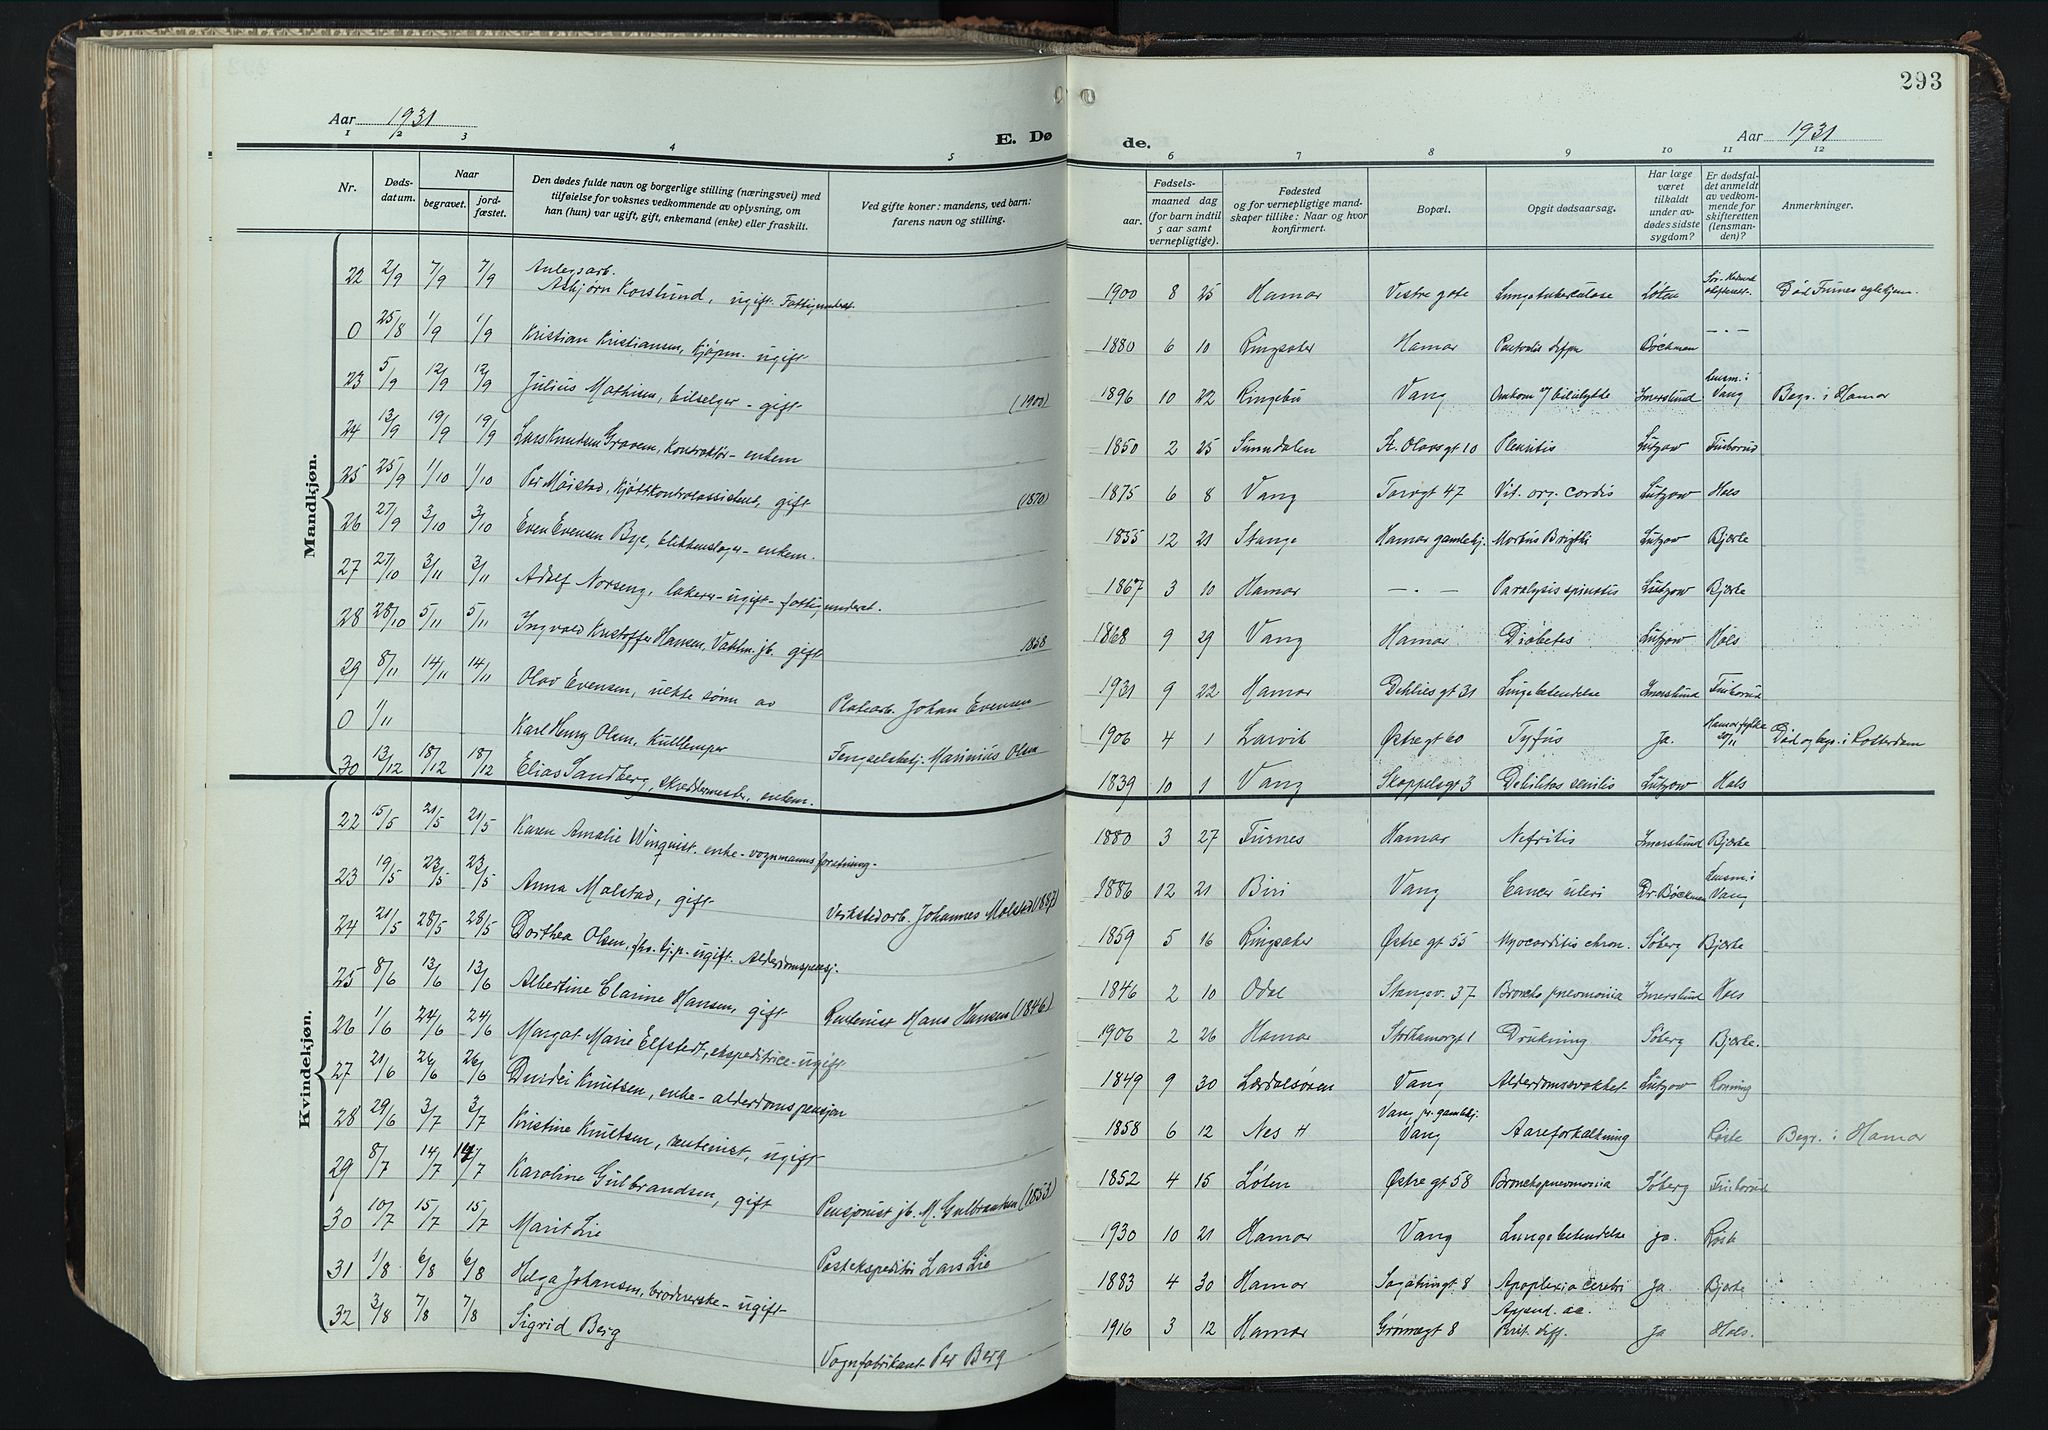 293
Aar 1931
E. Dø
de.
Aar 1931
1 2 3 4 5 6 7 8 9 10 11 12
Nr.
Døds-
datum.
Naar
begravet.
jord-
fæstet.
Den dødes fulde navn og borgerlige stilling (næringsvei) med
tilføielse for voksnes vedkommende av oplysning, om
han (hun) var ugift, gift, enkemand (enke) eller fraskilt.
Ved gifte koner: mandens, ved barn:
farens navn og stilling.
Fødsels-
aar.
maaned dag
(for barn indtil
5 aar samt
vernepligtige).
Fødested
og for vernepligtige mand-
skaper tillike: Naar og hvor
konfirmert.
Bopæl.
Opgit dødsaarsag.
Har læge
været
tilkaldt
under av-
dødes sidste
sygdom?
Er dødsfal-
det anmeldt
av vedkom-
mende for
skifteretten
(lensman-
den)?
Anmerkninger.
Mandkjøn.
22 2/9 7/9 7/9 Anlegsarb.
Asbjørn Korslund, ugift. Fattigunderst. 1900 8 25 Hamar Vestre gate Lungetuberculose Løten Død Furnes pleiehjem.
0 25/8 1/9 1/9 Kristian Kristiansen, Kjøpm. ugift 1880 6 10 Ringsaker Hamar Bøckman - . -
23 5/9 12/9 12/9 Julius Mathisen, bilselger - gift (1900) 1896 10 22 Ringebu Vang Omkom v/ bilulykke Imerslund Lensm. i Vang Begr. i Hamar
24 13/9 19/9 19/9 Lars Knutsen Gravem, Kontraktør - enkem 1850 2 25 Sunndalen St. Olavsgt 10 Pleuritis Lutzow Finborud
25 25/9 1/10 1/10 Per Måistad, Kjøttkontrolassistent, gift (1870) 1875 6 8 Vang Torvgt 47 Vit. org. cordis Lutzow Hals
26 27/9 3/10 3/10 Even Evensen Bye, blikkenslager - enkem. 1855 12 21 Stange Hamar gamlehj. Morbus Brigthi Lutzow Bjerke
27 27/10 3/11 3/11 Adolf Norseng, lakerer - ugift - fattigunderst. 1867 3 10 Hamar - . - Paralysis spinalis Lutzow Bjerke
28 28/10 5/11 5/11 Ingvald Kristoffer Hansen, Vaktm. jb. gift 1868 1868 9 29 Vang Hamar Diabetes Lutzow Hals
29 8/11 14/11 14/11 Olav Evensen, uekte sønn av Platearb. Johan Evensen 1931 9 22 Hamar Dehlies gt 31 Lungebetendelse Imerslund Finborud
0 1/11 Karl Henry Olsen, Kullemper Fengselsbetj. Marinius Olsen 1906 4 1 Larvik Østregt 60 Tyfus Ja. Død og begr. i Rotterdam
30 13/12 18/12 18/12 Elias Sandberg, skreddermester, enkem. 1839 10 1 Vang Skappelsgt 3 Debilitas senilis Lutzow Hals
Kvindekjøn.
22 15/5 21/5 21/5 Karen Amalie Winquist. enke - vognmannsforretning. 1880 3 27 Furnes Hamar Nefritis Imerslund Bjerke
23 19/5 23/5 23/5 Anna Molstad, gift Verkstedarb. Johannes Molstad (1887) 1886 12 21 Biri Vang Cancer uteri Dr. Bøckman Lensm. i Vang
24 21/5 28/5 28/5 Dorthea Olsen, fhv. tj.p. - ugift. Alderdomspensj. 1859 5 16 Ringsaker Østre gt 55 Myocarditis chron. Søberg Bjerke
25 8/6 13/6 13/6 Albertine Elarine Hansen, gift Rentenist Hans Hansen (1846) 1846 2 10 Odal Stangev. 37 Bronchopneumonia Imerslund Hals
26 1/6 24/6 24/6 Margot Marie Elfstedt, ekspeditrice - ugift 1906 2 26 Hamar Storhamargt 1 Drukning Søberg Bjerke.
27 21/6 26/6 26/6 Durdei Knutsen, enke - alderdomspensjon 1849 9 30 Lærdalsøren Vang Alderdomssvakhet Lutzow Rønning
28 29/6 3/7 3/7 Kristine Knutsen, rentenist, ugift 1858 6 12 Nes H Vang pr. gamlehj. Vang Aareforkalkning Røste Begr. i Hamar
29 8/7 14/7 14/7 Karoline Gulbrandsen, gift Pensjonist jb. M. Gulbrandsen (1853) 1852 4 15 Løten Østre gt 58 Bronchopneumonia Søberg Finborud
30 10/7 15/7 15/7 Marit Lie Postekspeditør Lars Lie 1930 10 21 Hamar Vang Lungebetendelse ja. Røste
31 1/8 6/8 6/8 Helga Johansen, brodererske - ugift 1883 4 30 Hamar Sagatungt 8 Apoplexia cerebri Ja. Bjerke
32 3/8 7/8 7/8 Sigrid Berg Vognfabrikant Per Berg 1916 3 12 Hamar Grønnegt 8 Append. ac. Perit. diff. Ja Hals.